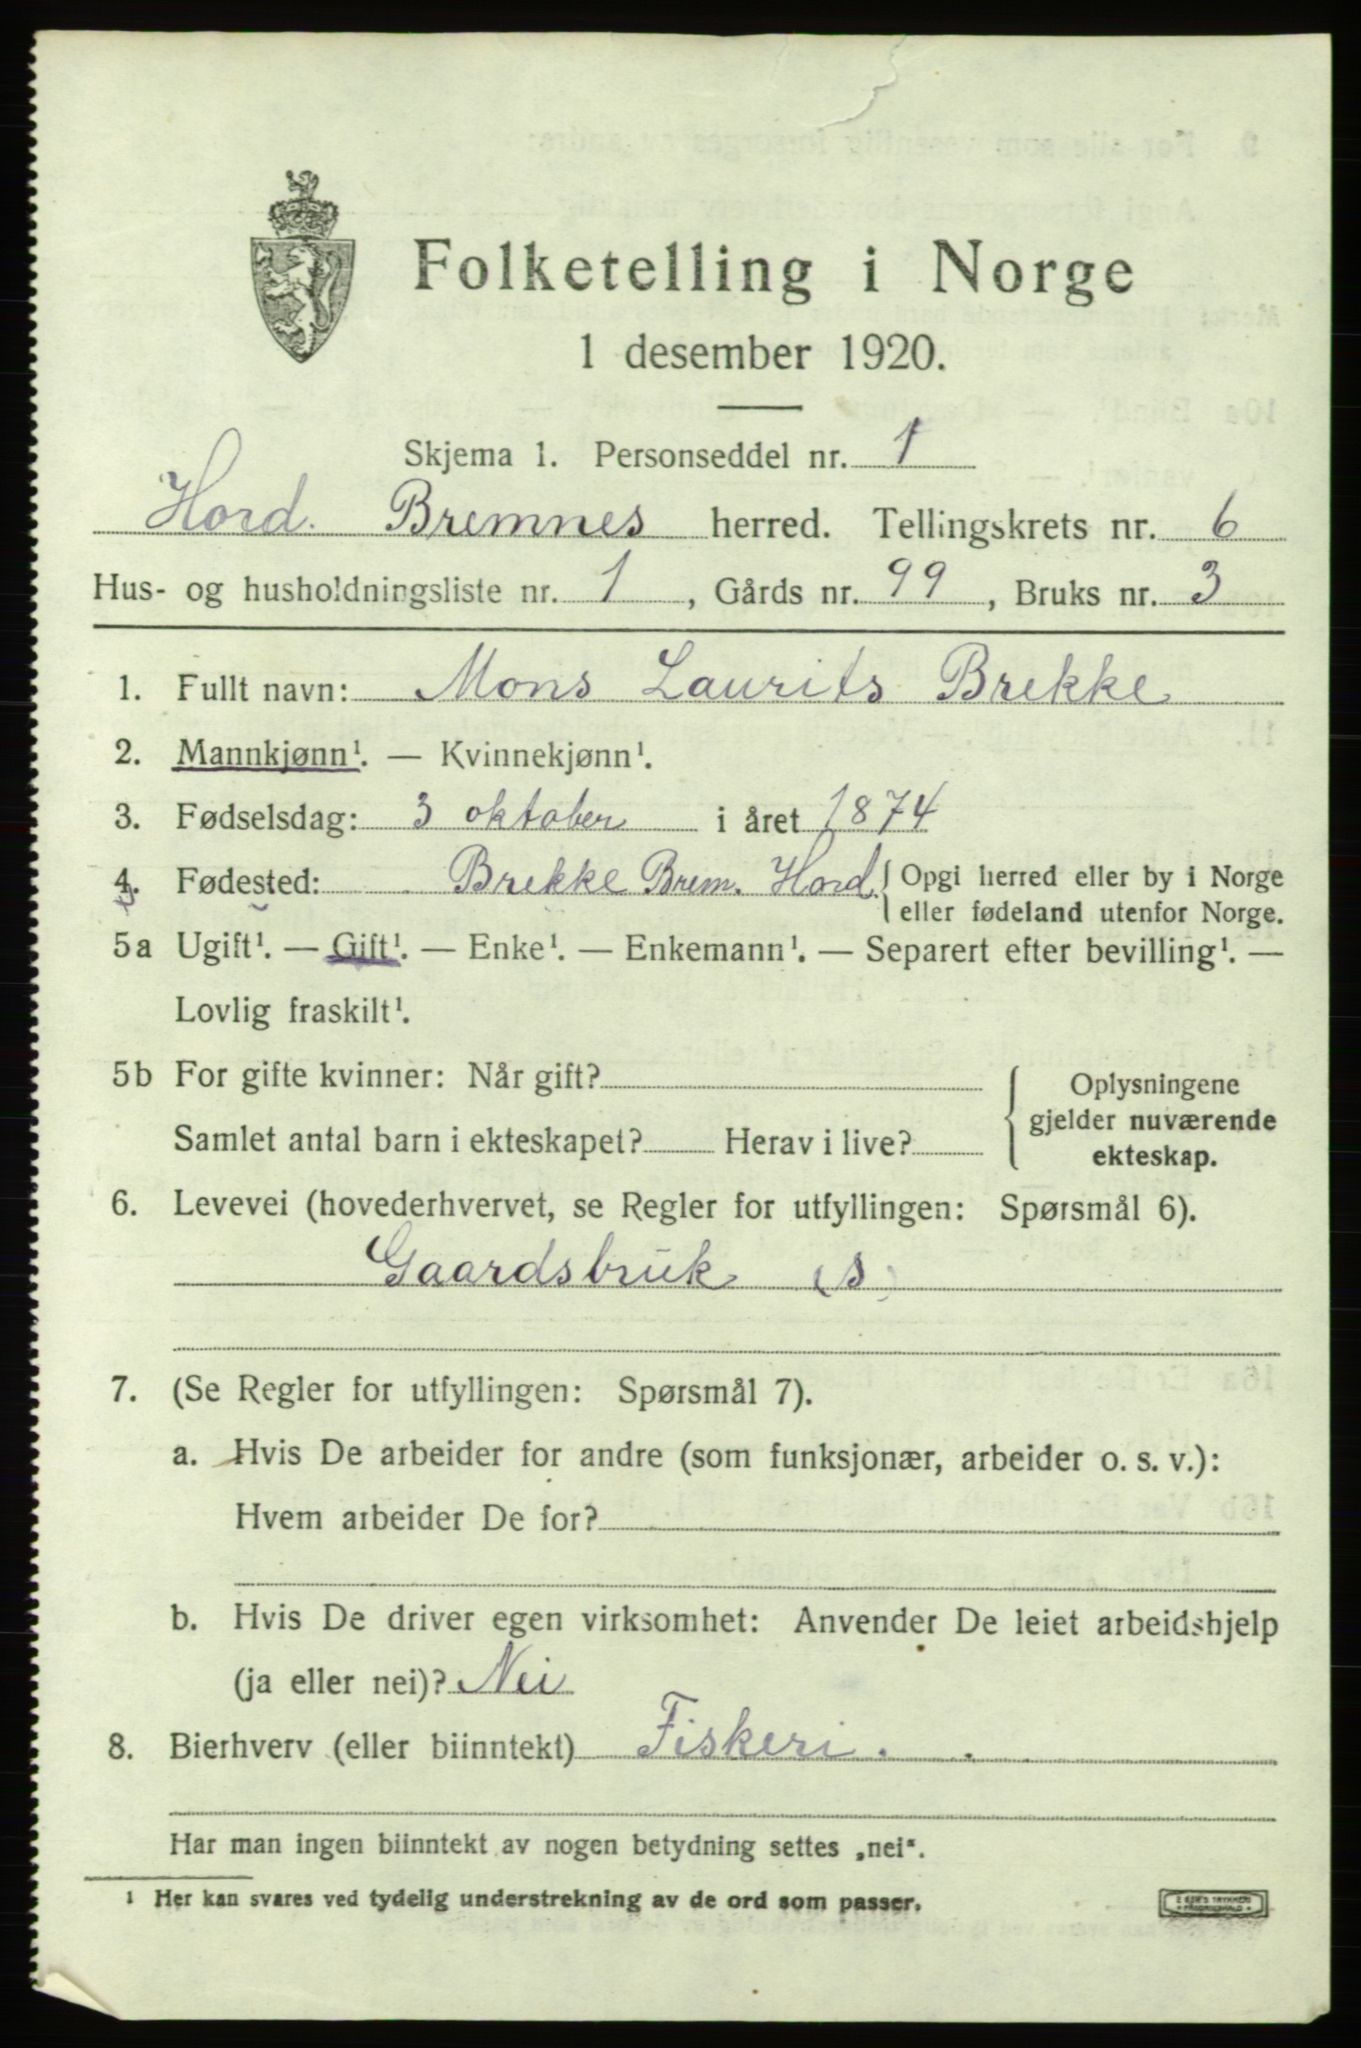 Folketelling i Norge
1 desember 1920.
Skjema 1. Personseddel nr. 1
Hord. Bremnes herred. Tellingskrets nr. 6
Hus- og husholdningsliste nr. 1, Gårds nr. 99, Bruks nr. 3
1. Fullt navn: Mons Laurits Brekke
2. Mannkjønn¹. — Kvinnekjønn¹.
3. Fødselsdag: 3 oktober i året 1874
4. Fødested: Brekke Brem. Hord. { Opgi herred eller by i Norge
eller fødeland utenfor Norge.
5a Ugift¹. — Gift¹. — Enke¹. — Enkemann¹. — Separert efter bevilling¹. —
Lovlig fraskilt¹.
5b For gifte kvinner: Når gift?
Samlet antal barn i ekteskapet? Herav i live?
{ Oplysningene
gjelder nuværende
ekteskap.
6. Levevei (hovederhvervet, se Regler for utfyllingen: Spørsmål 6).
Gaardsbruk (s)
7. (Se Regler for utfyllingen: Spørsmål 7).
a. Hvis De arbeider for andre (som funksjonær, arbeider o. s. v.):
Hvem arbeider De for?
b. Hvis De driver egen virksomhet: Anvender De leiet arbeidshjelp
(ja eller nei)? Nei
8. Bierhverv (eller biinntekt) Fiskeri.
Har man ingen biinntekt av nogen betydning settes „nei“.
¹ Her kan svares ved tydelig understrekning av de ord som passer.